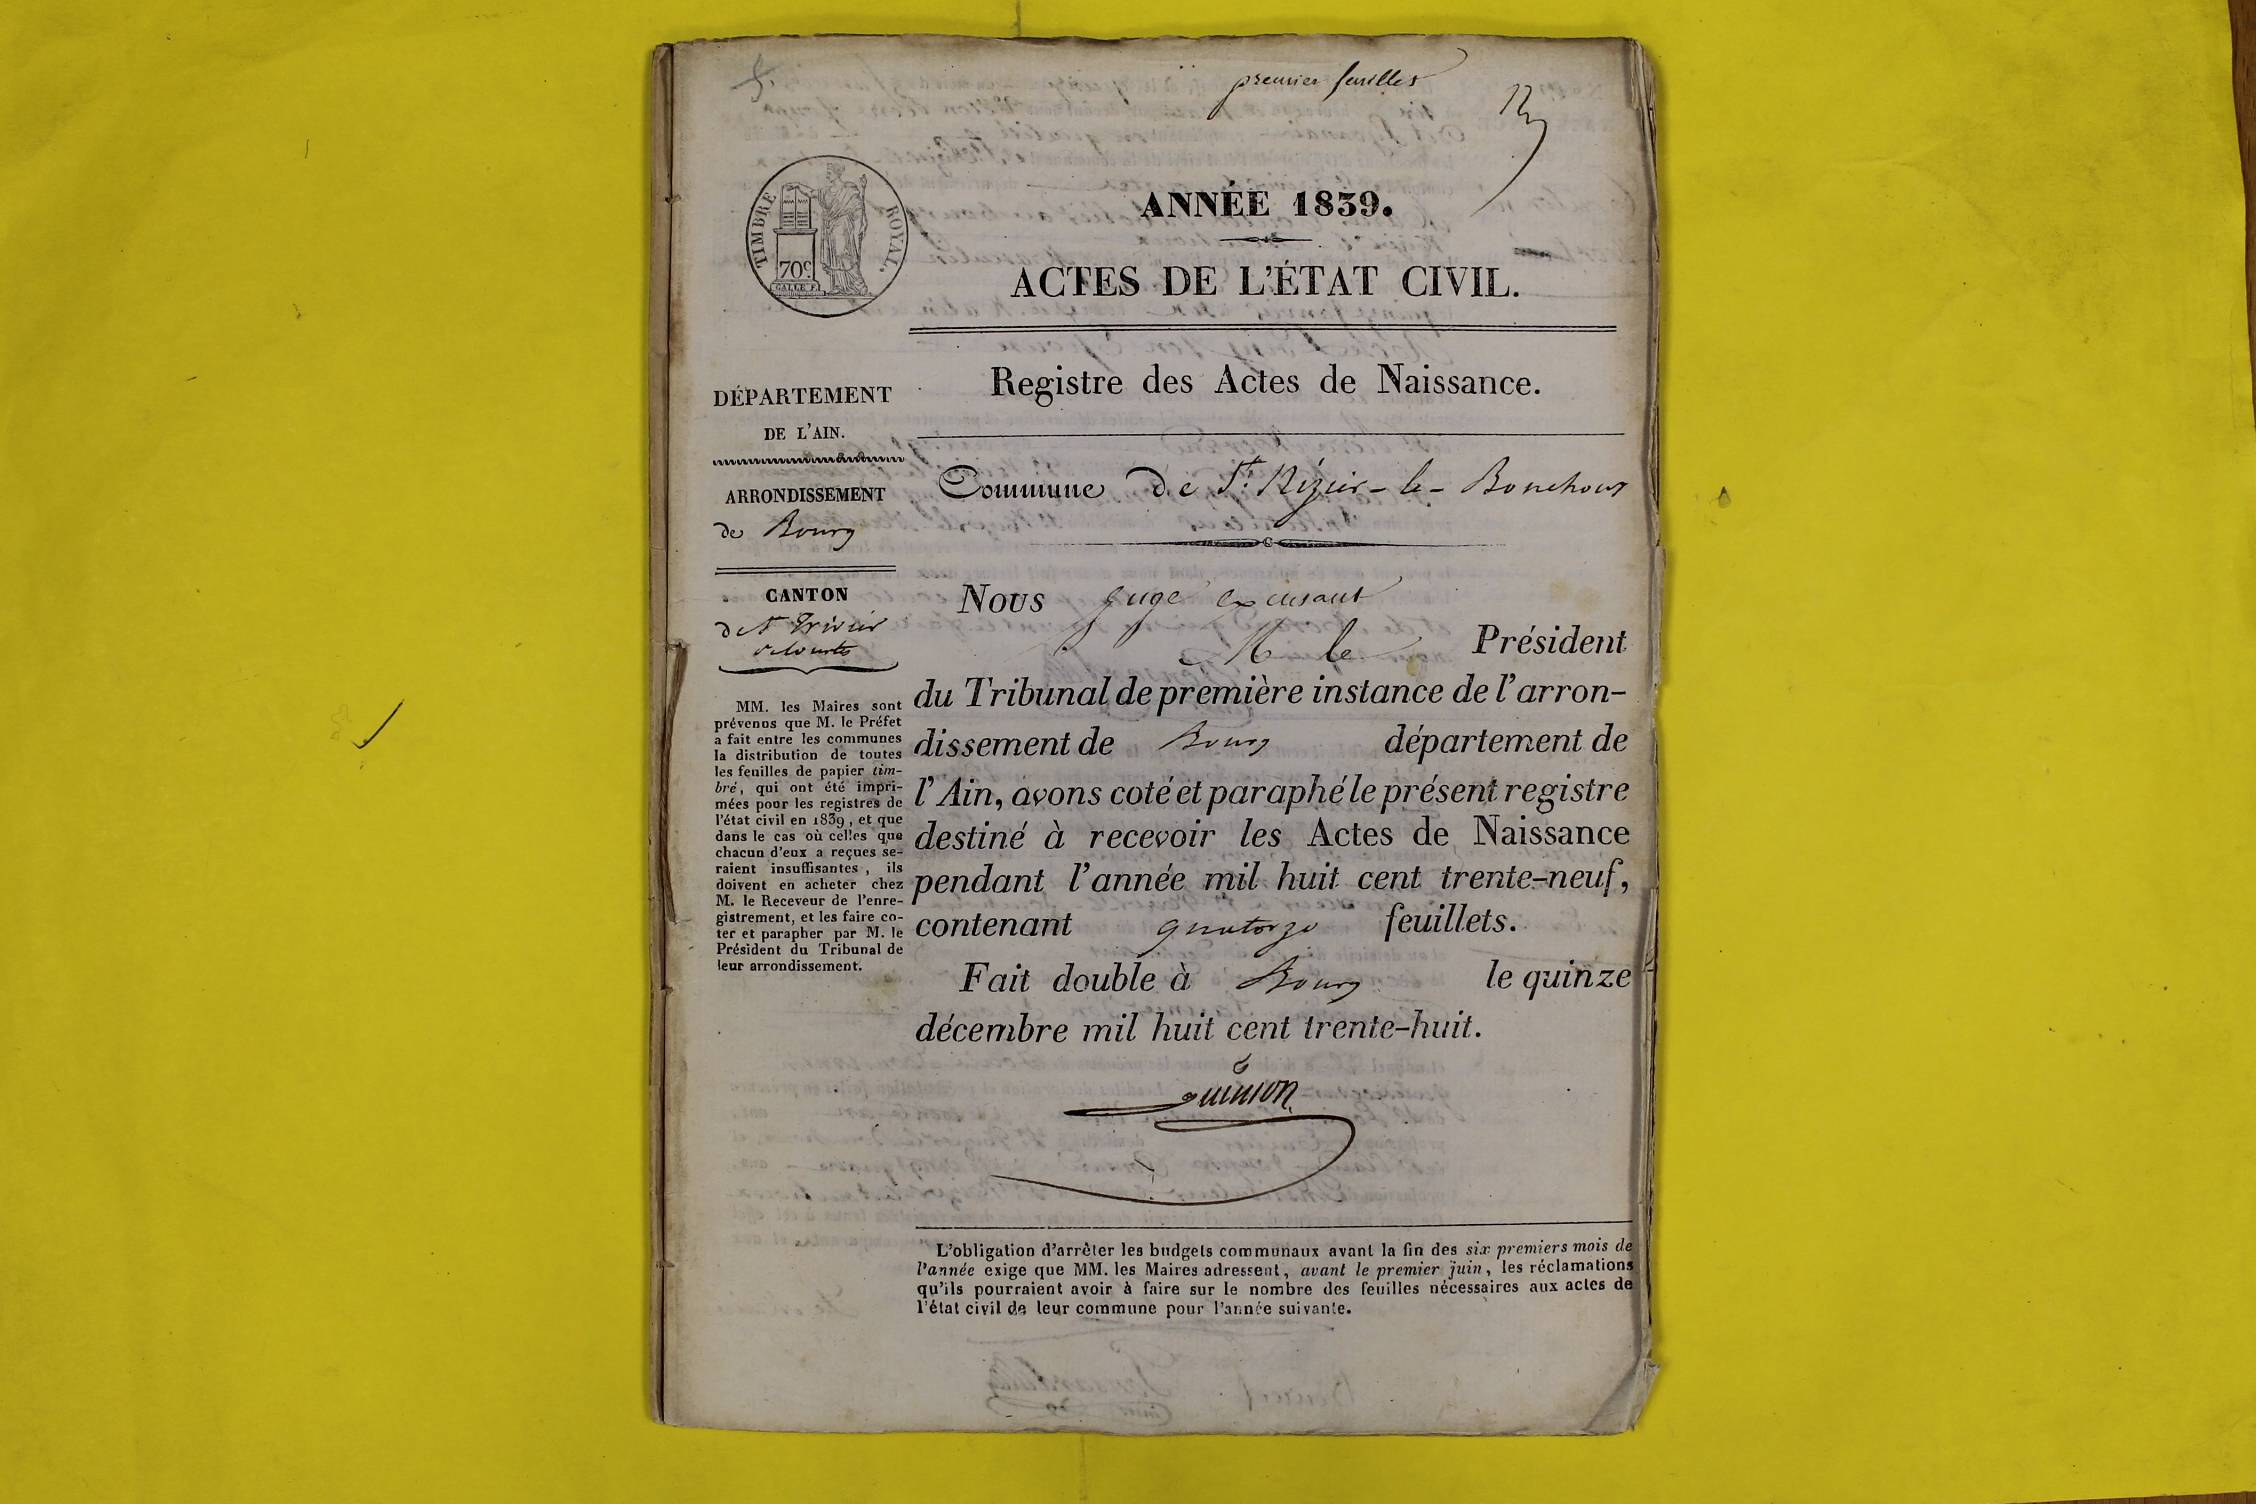 premier feuillet
TIMBRE ROYAL.
70 c.
GALLE F.
ANNÉE 1839.
ACTES DE L'ÉTAT CIVIL.
Registre des Actes de Naissance.
DÉPARTEMENT
DE L'AIN.
ARRONDISSEMENT
de Bourg
CANTON
de St Trivier
de Courtes
MM. les Maires sont
prévenus que M. le Préfet
a fait entre les communes
la distribution de toutes
les feuilles de papier tim-
bré, qui ont été impri-
mées pour les registres de
l'état civil en 1839, et que
dans le cas où celles que
chacun d'eux a reçues se-
raient insuffisantes, ils
doivent en acheter chez
M. le Receveur de l'enre-
gistrement, et les faire co-
ter et parapher par M. le
Président du Tribunal de
leur arrondissement.
Commune de St. Nizier-le-Bouchoux
Nous juge excusant
M le Président
du Tribunal de première instance de l'arron-
dissement de Bourg département de
l'Ain, avons coté et paraphé le présent registre
destiné à recevoir les Actes de Naissance
pendant l'année mil huit cent trente-neuf,
contenant quatorze feuillets.
Fait double à Bourg le quinze
décembre mil huit cent trente-huit.
L'obligation d'arrêter les budgets communaux avant la fin des six premiers mois de
l'année exige que MM. les Maires adressent, avant le premier juin, les réclamations
qu'ils pourraient avoir à faire sur le nombre des feuilles nécessaires aux actes de
l'état civil de leur commune pour l'année suivante.